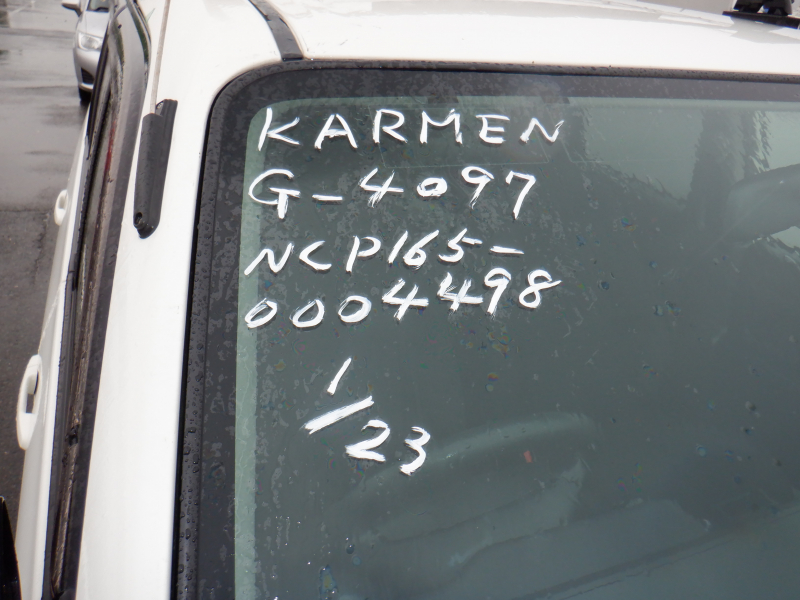 KARMEN
G-4097
NCP165-
0004498
1/23